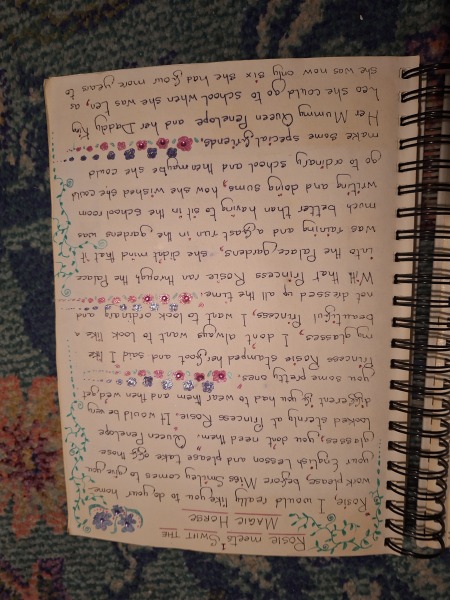 Rosie meets Swift the
Magic Horse
Rosie, I would really like you to do your home-
work please, before Miss Smiley comes to give you
your English Lesson and please take off those
glasses, you don't need them." Queen Penelope
looked sternly at Princess Rosie. It would be very
different if you had to wear them and then we'd get
you some pretty ones.
Princess Rosie stamped her foot and said I like
my glasses, I don't always want to look like a
beautiful Princess, I want to look ordinary and
not dressed up all the time.
With that Princess Rosie ran through the Palace
into the Palace gardens, she didn't mind that it
was raining and a fast run in the gardens was
much better than having to sit in the school room
writing and doing sums, how she wished she could
go to ordinary school and then maybe she could
make some special friends.
Her Mummy Queen Penelope and her Daddy King
Leo she could go to school when she was Ten, as
she was now only six she had four more years to